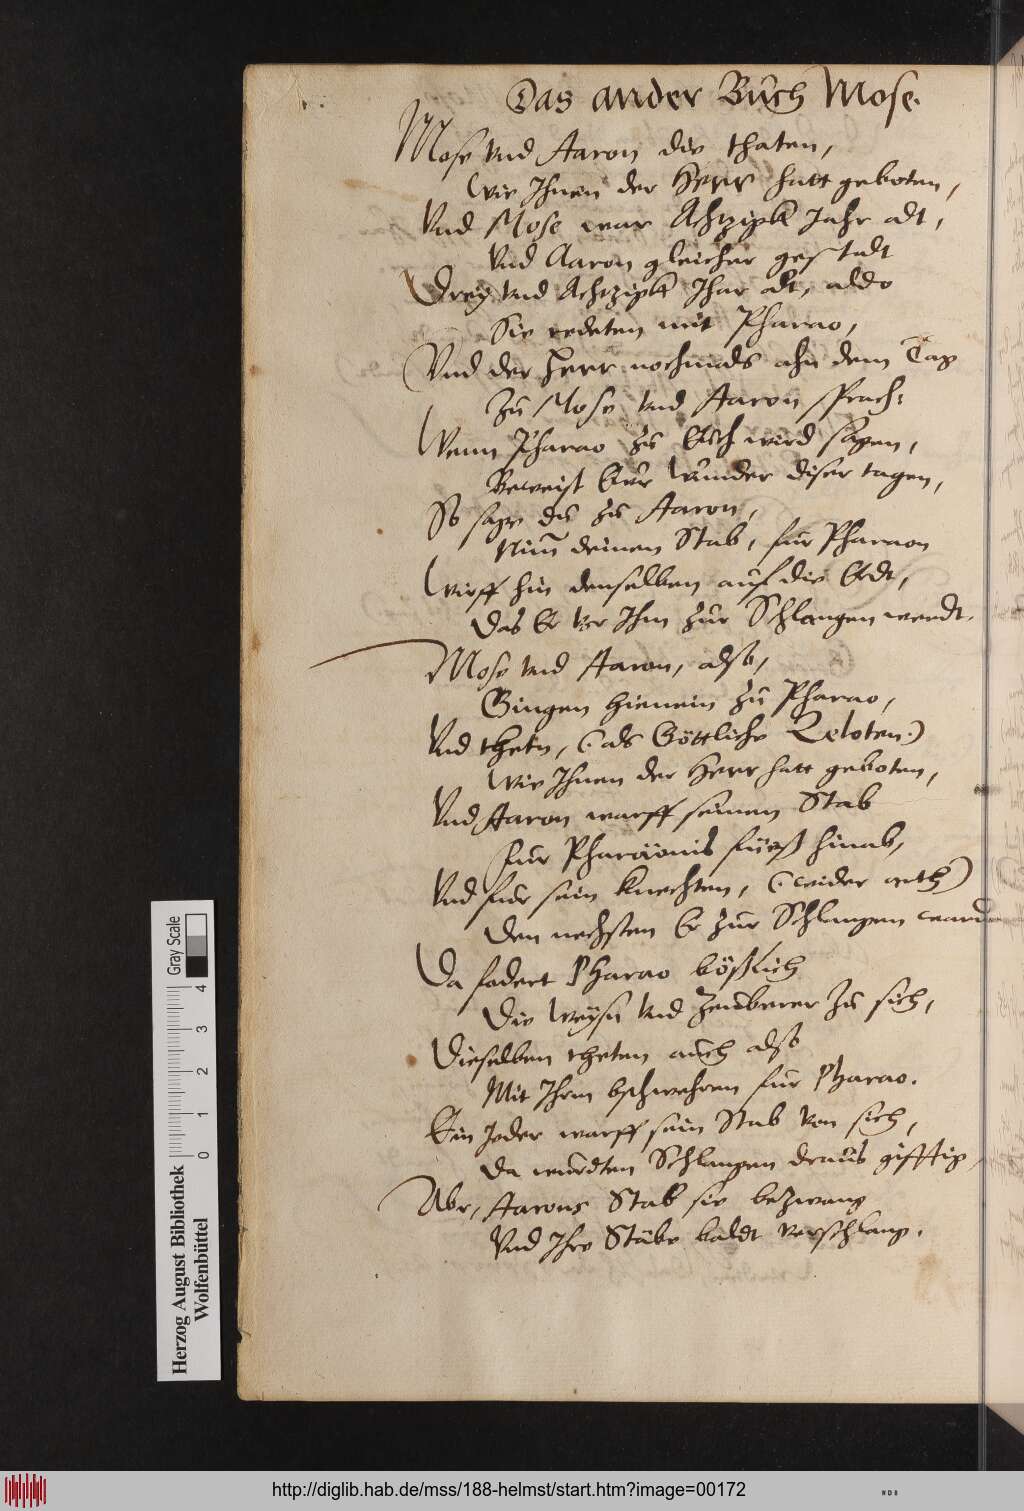 Das ander Buch Mose.
Mose vnd Aaron die thaten,
Wie Ihnen der Herr hatt geboten,
Vnd Mose war Achtzigk Jahr alt,
Vnd Aaron gleicher gestalt
Drey vnd Achtzigk Jhar alt, aldo
Sie redeten mit Pharao,
Vnd der Herr nochmals ahn dem Tag
Zu Mose vnd Aaron sprach:
Wenn Pharao zu Euch wird sagen,
Beweist Eur Wunder diser tagen,
So sage du zu Aaron,
Nim̄ deinen Stab, fur Pharaon
Wirff hin denselben auf die Erdt,
Das Er vor Ihm zur Schlangen werdt.
Mose vnd Aaron, also,
Gingen hienein zu Pharao,
Vnd theten, (als Göttliche Zeloten.)
Wie Ihnen der Herr hatt geboten,
Vnd Aaron warff seinen Stab
fur Pharaonis füeß hinab,
Vnd fur sein knechten, (wider arth)
Den nechsten Er zur Schlangen ward
Da fodert Pharao bößlich
Die Weysn vnd Zeuberer zu sich,
Dieselben theten auch also
Mit Ihrm bschwehren fur Pharao.
Ein Jeder warff sein Stab von sich,
Da wurdten Schlangen draus gifftig,
Aber, Aarons Stab sie bezwang
Vnd Ihre Stäbe baldt verschlang.
Gray Scale
0 1 2 3 4
Herzog August Bibliothek
Wolfenbüttel
http://diglib.hab.de/mss/188-helmst/start.htm?image=00172